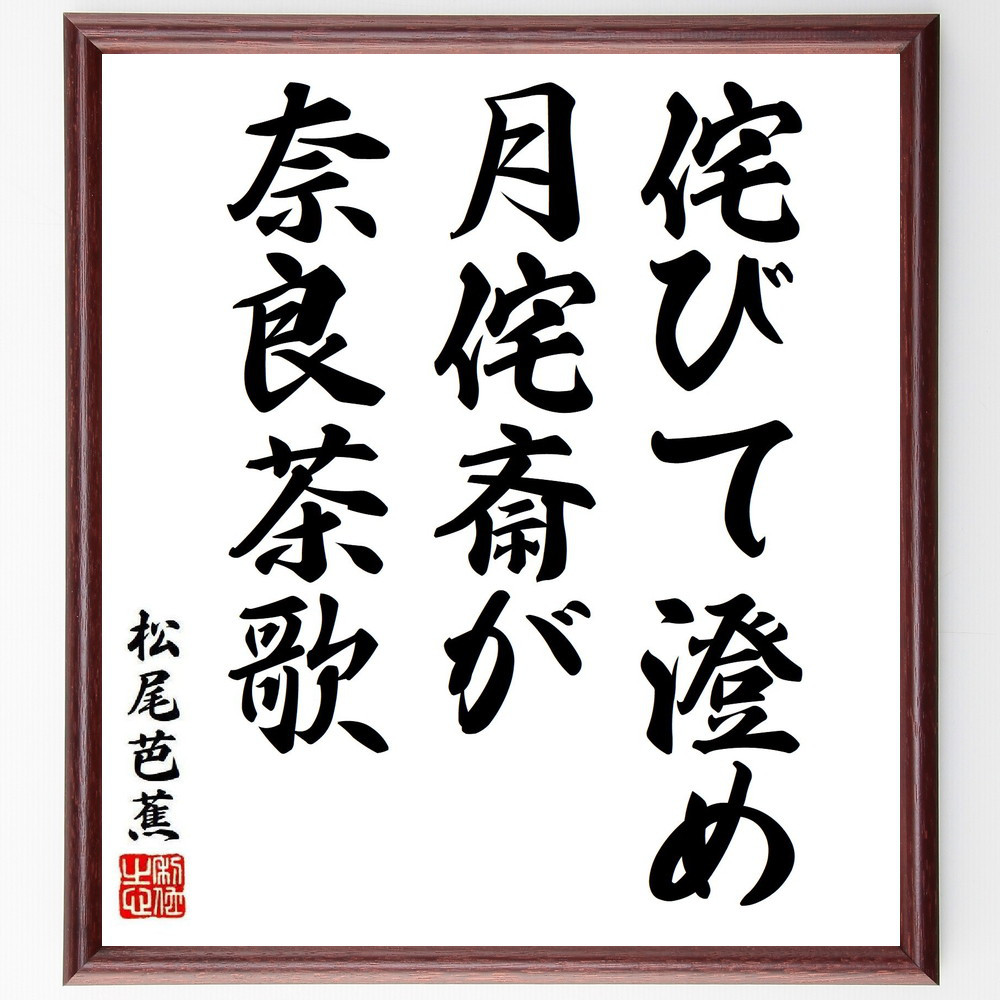 侘びて澄め
月侘斎が
奈良茶歌
松尾芭蕉